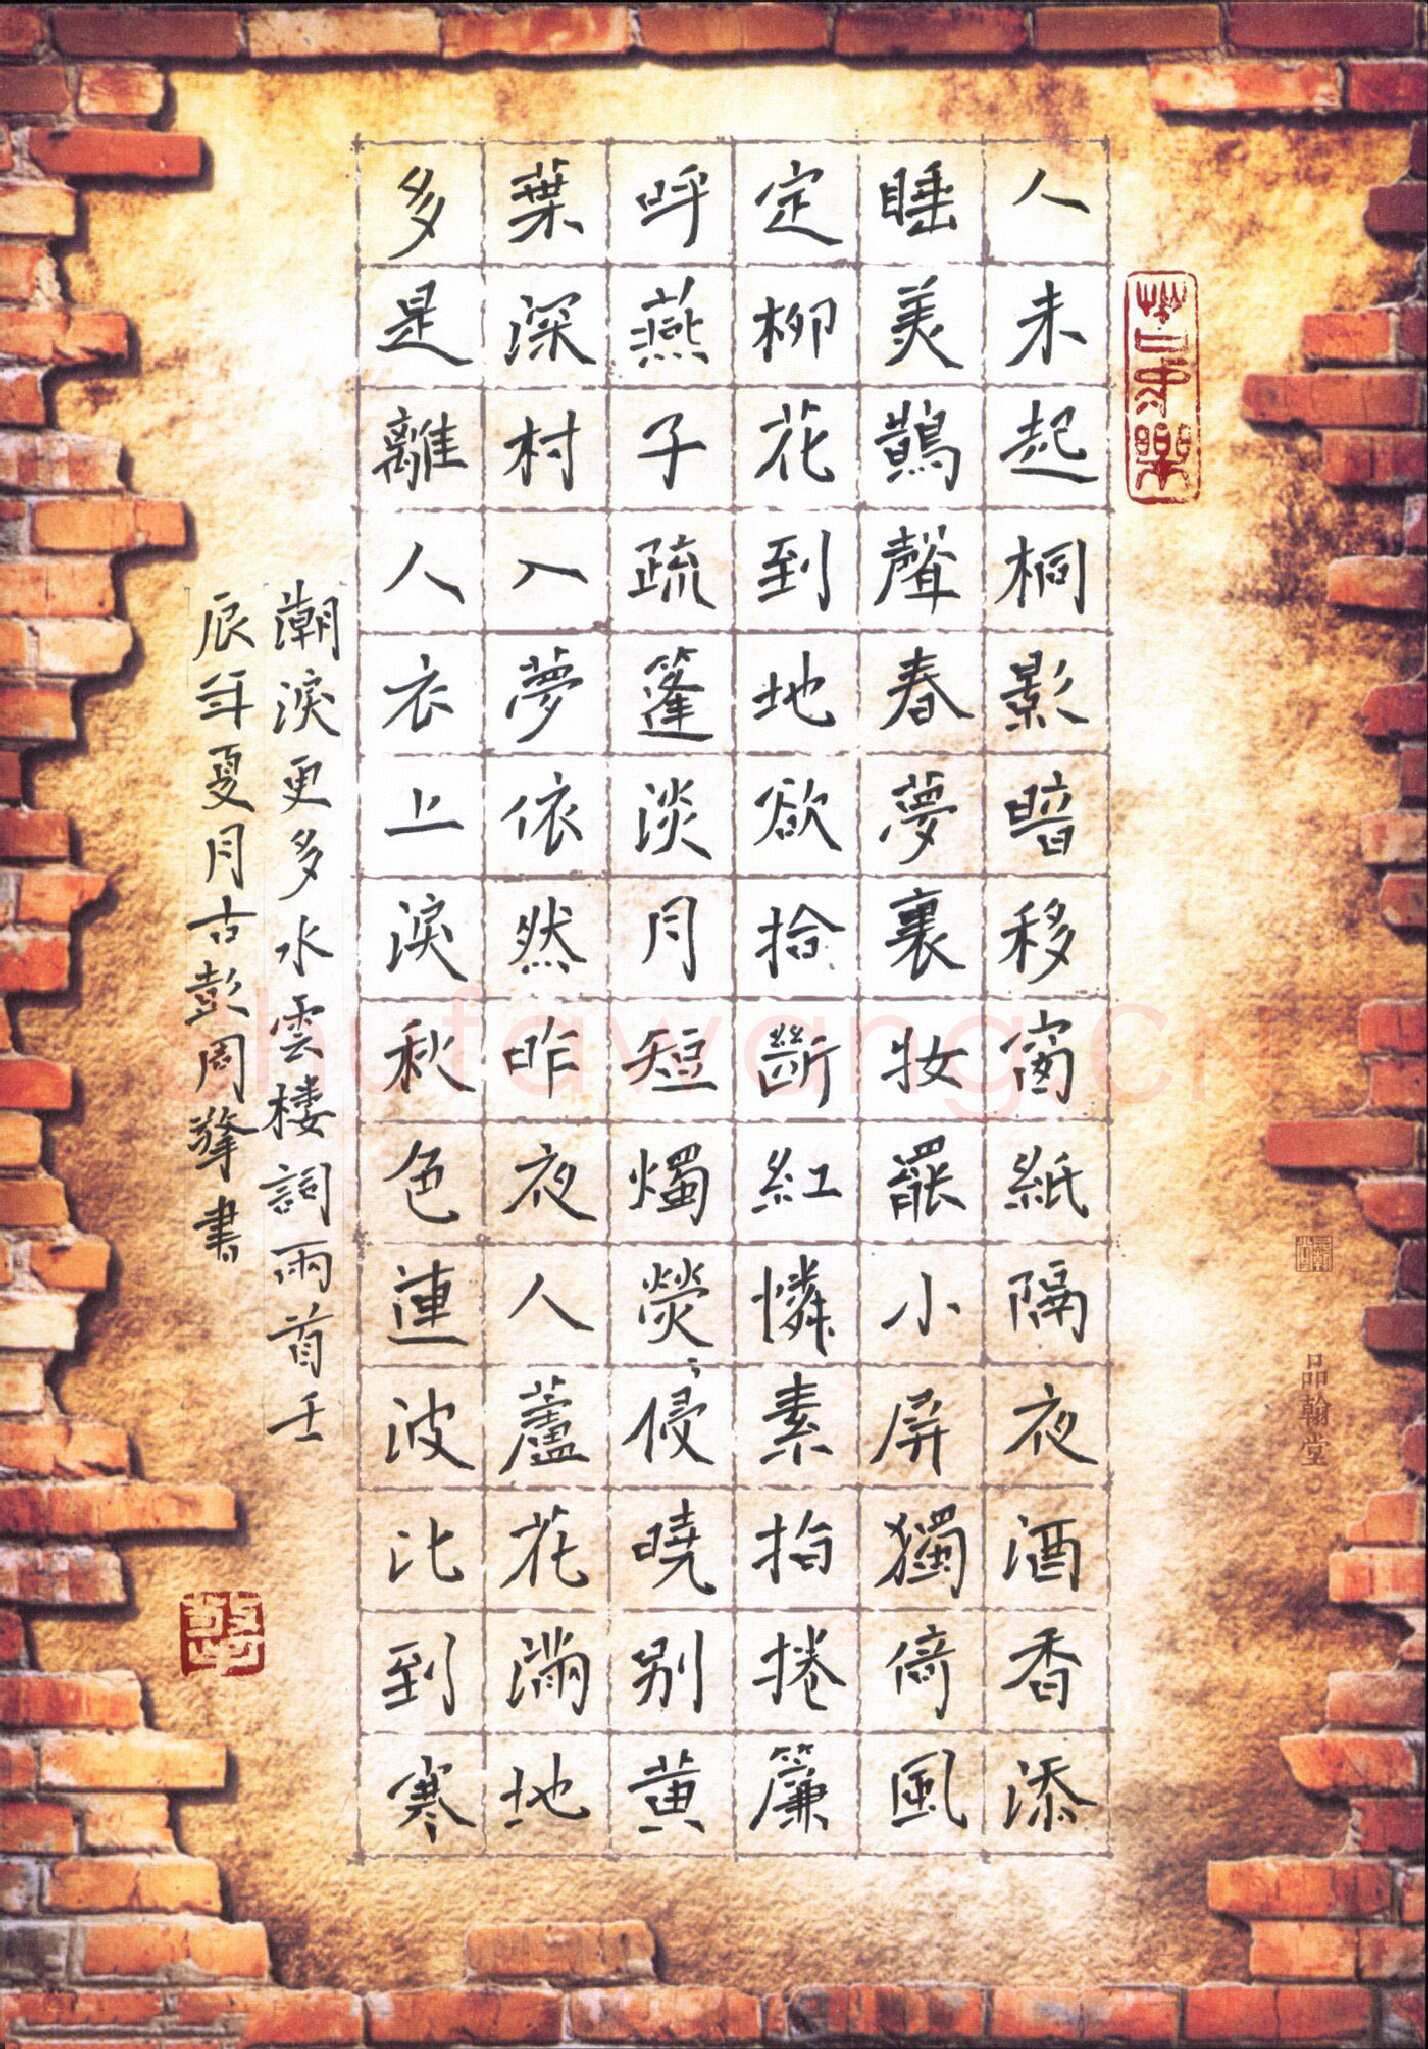 人未起桐影暗移窗紙隔夜酒香添
睡美鵲聲春夢裏妝罷小屏獨倚風
定柳花到地欲拾斷紅憐素指捲簾
呼燕子疏篷淡月短燭熒侵曉別黃
葉深村入夢依然昨夜人蘆花滿地
多是離人衣上淚秋色連波比到寒
潮淚更多水雲樓詞兩首壬
辰年夏月古彭周擎書
品翰堂
shufawang.cn